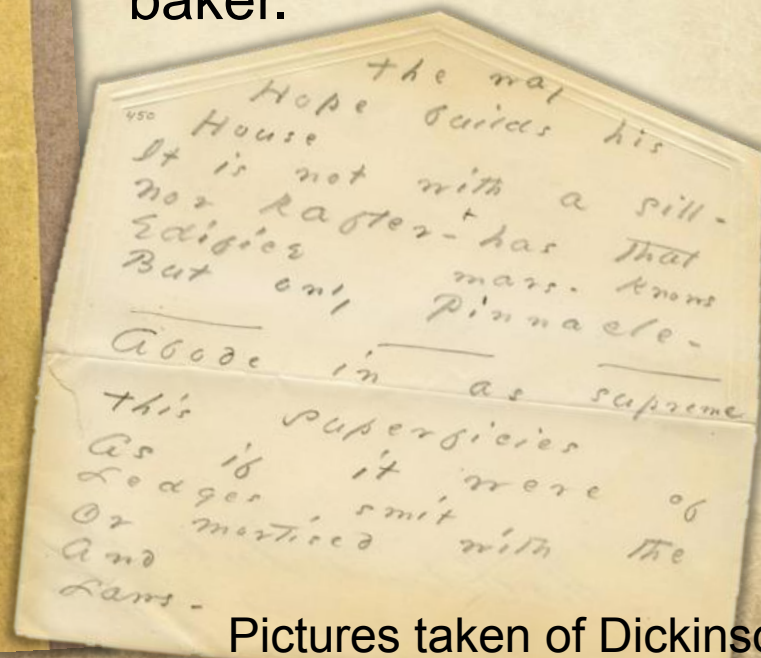 baker.
The way
Hope builds his
450
House
It is not with a sill -
nor Rafter - has that
Edifice mars. knows
But only Pinnacle -
Abode in as supreme
This superficies
As if it were of
Ledges smit
Or mortised with the
And
Laws -
Pictures taken of